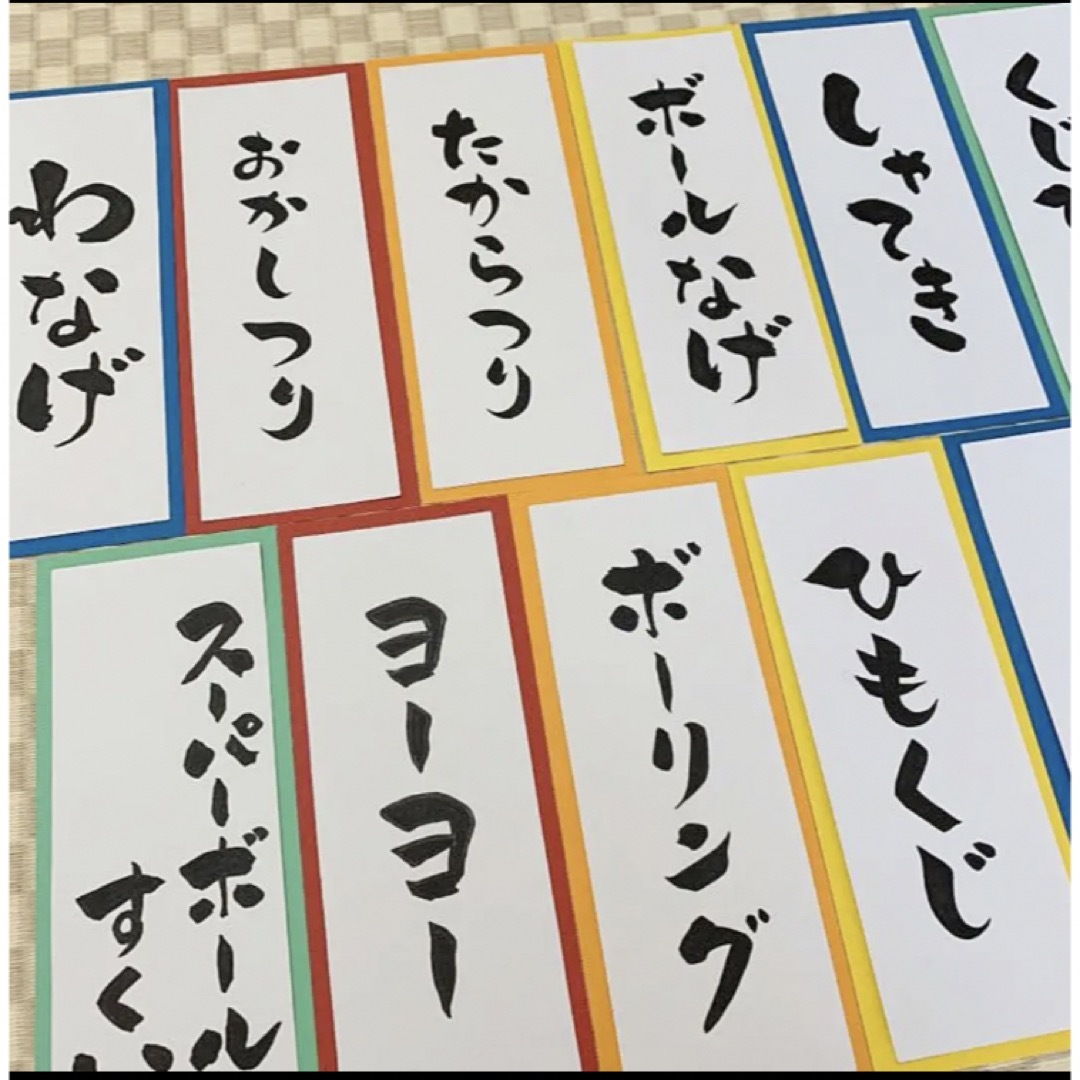 わなげ
おかしつり
たからつり
ボールなげ
しゃてき
くじ
スーパーボール
すく
ヨーヨー
ボーリング
ひもくじ